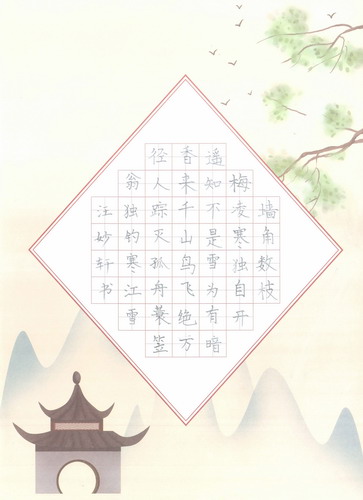 墙角数枝
梅凌寒独自开
遥知不是雪为有暗
香来千山鸟飞绝万
径人踪灭孤舟蓑笠
翁独钓寒江雪
汪妙轩书